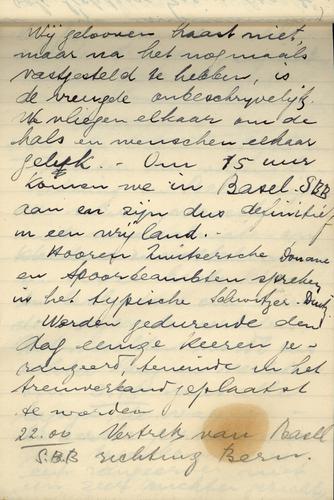 Wij gelooven haast niet,
maar na het nogmaals
vastgesteld te hebben, is
de vreugde onbeschryvelyk.
We vliegen elkaar om de
hals en wenschen elkaar
geluk. - Om 15 uur
komen we in Basel. S.B.B
aan en zijn dus definitief
in een vrij land. -
Hooren Zwitsersche Douane
en Spoorbeambten spreken
in het typische Schwitzer-Dütz.
Worden gedurende den
dag eenige keeren ge-
rangeerd, teneinde in het
treinverband geplaatst
te worden
22.00 Vertrek van Basel
S.B.B richting Bern.